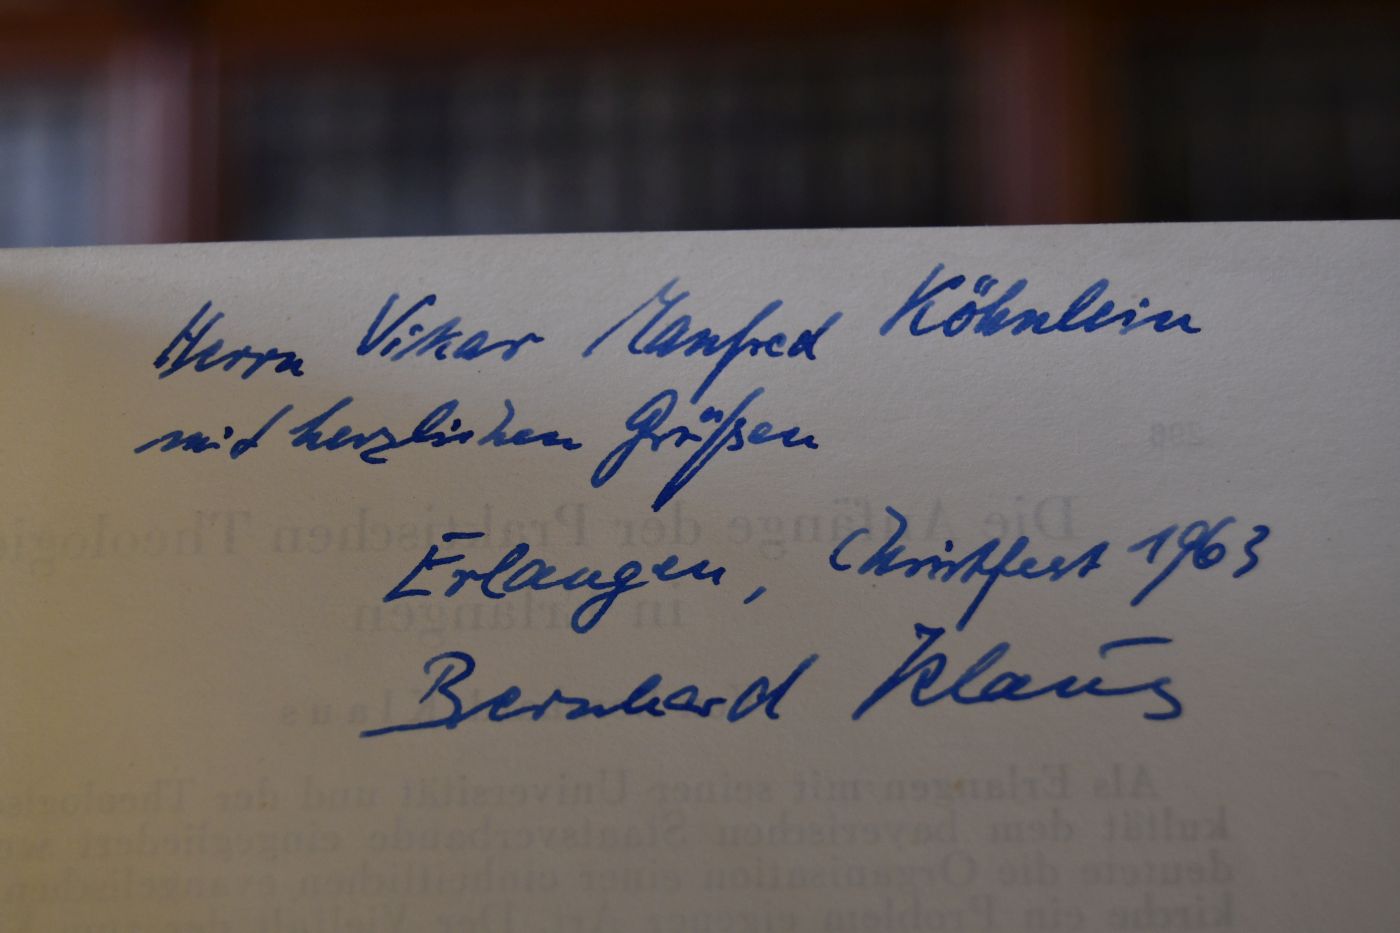 Herrn Vikar Manfred Köhnlein
mit herzlichen Grüßen
Erlangen, Christfest 1963
Bernhard Klaus
Die Anfänge der Praktischen Theologie
in Erlangen
Klaus
Als Erlangen mit seiner Universität und der Theologis
kultät dem bayerischen Staatsverbande eingegliedert
deutete die Organisation einer einheitlichen evangelischen
kirche ein Problem eigener Art. Der Vielfalt der